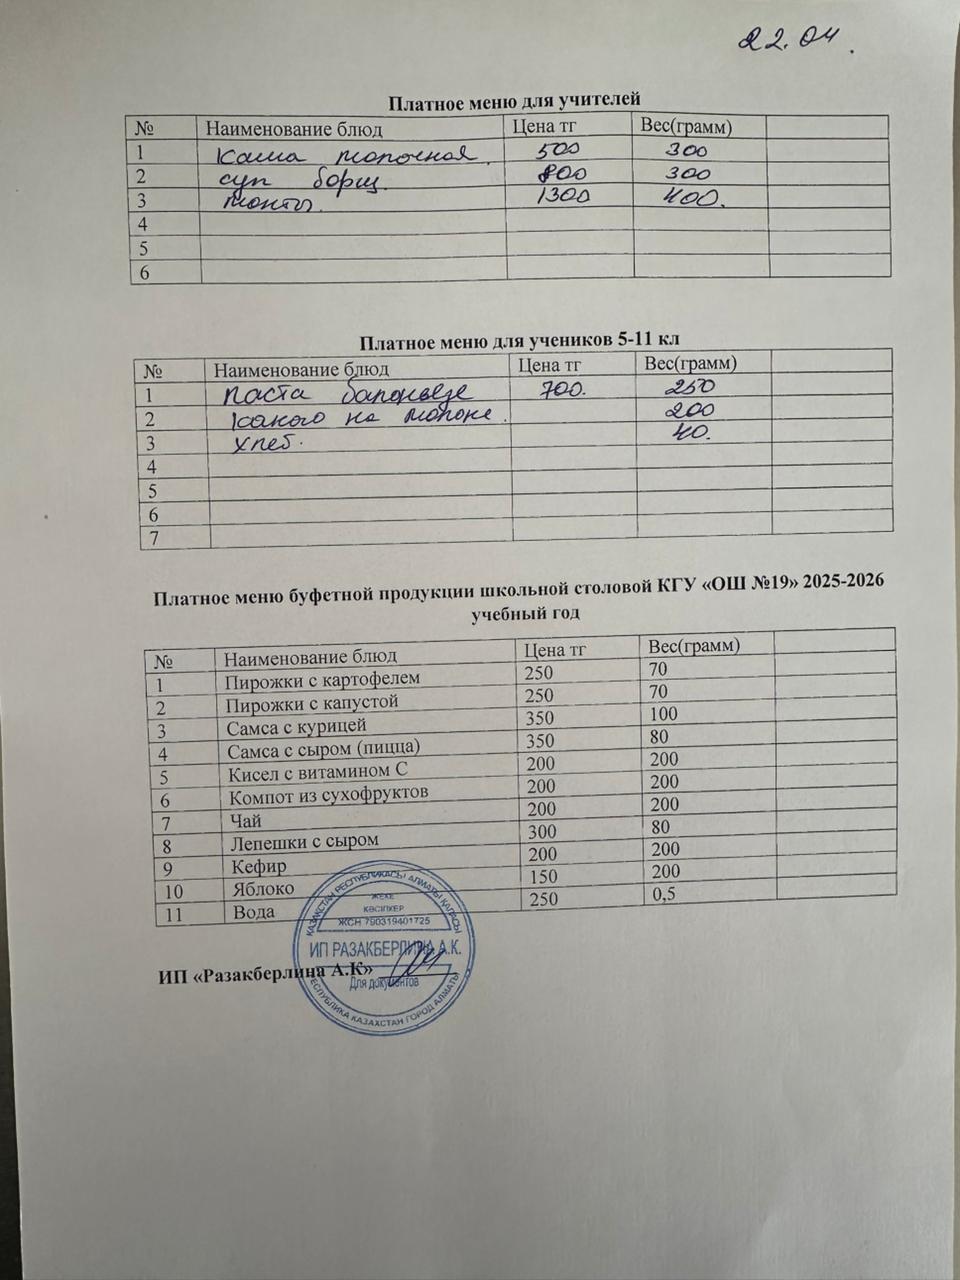 22.04.
Платное меню для учителей
№ Наименование блюд Цена тг Вес(грамм)
1 Каша молочная. 500 300
2 суп борщ. 800 300
3 манты. 1300 400.
4
5
6
Платное меню для учеников 5-11 кл
№ Наименование блюд Цена тг Вес(грамм)
1 Паста балоньезе 700. 250
2 Какао на молоке. 200
3 хлеб. 40.
4
5
6
7
Платное меню буфетной продукции школьной столовой КГУ «ОШ №19» 2025-2026
учебный год
№ Наименование блюд Цена тг Вес(грамм)
1 Пирожки с картофелем 250 70
2 Пирожки с капустой 250 70
3 Самса с курицей 350 100
4 Самса с сыром (пицца) 350 80
5 Кисел с витамином С 200 200
6 Компот из сухофруктов 200 200
7 Чай 200 200
8 Лепешки с сыром 300 80
9 Кефир 200 200
10 Яблоко 150 200
11 Вода 250 0,5
ҚАЗАҚСТАН РЕСПУБЛИКАСЫ АЛМАТЫ ҚАЛАСЫ
ЖЕКЕ
КӘСІПКЕР
ЖСН 790319401725
ИП РАЗАКБЕРЛИНА А.К.
ИП «Разакберлина А.К»
Для документов
РЕСПУБЛИКА КАЗАХСТАН ГОРОД АЛМАТЫ